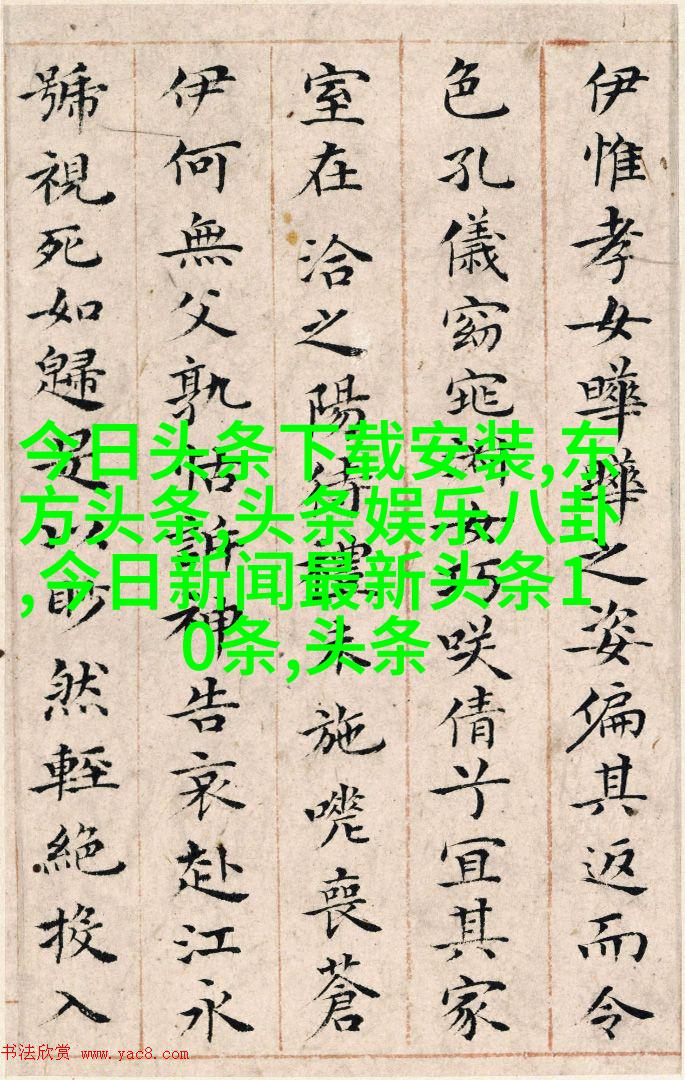 伊惟孝女曄曄之姿偏其返而令
色孔儀窈窕淑女巧咲倩兮宜其家
室在洽之陽待禮未施嘅喪蒼
伊何無父孰怙訴神告哀赴江永
號視死如歸是以眇然輕絕投入
今日头条下载安装,东
方头条,头条娱乐八卦
,今日新闻最新头条1
0条,头条
书法欣赏 www.yac8.com